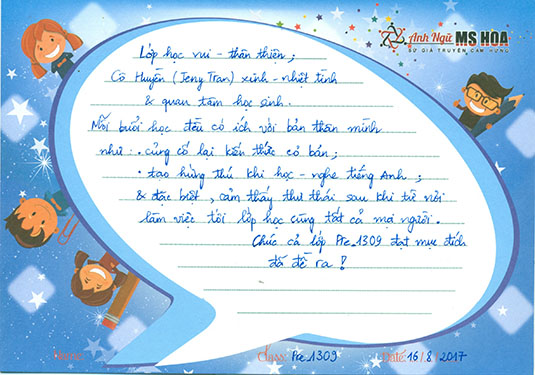 Anh Ngữ MS HOA
SỨ GIẢ TRUYỀN CẢM HỨNG
Lớp học vui - thân thiện;
Cô Huyền (Jeny Tran) xinh - nhiệt tình
& quan tâm học sinh.
Mỗi buổi học đều có ích với bản thân mình
như: · củng cố lại kiến thức cơ bản;
· tạo hứng thú khi học - nghe tiếng Anh;
& đặc biệt, cảm thấy thư thái sau khi từ nơi
làm việc tới lớp học cùng tất cả mọi người.
Chúc cả lớp Pre_1309 đạt mục đích
đã đề ra!
Name:
Class: Pre_1309
Date: 16/8/2017